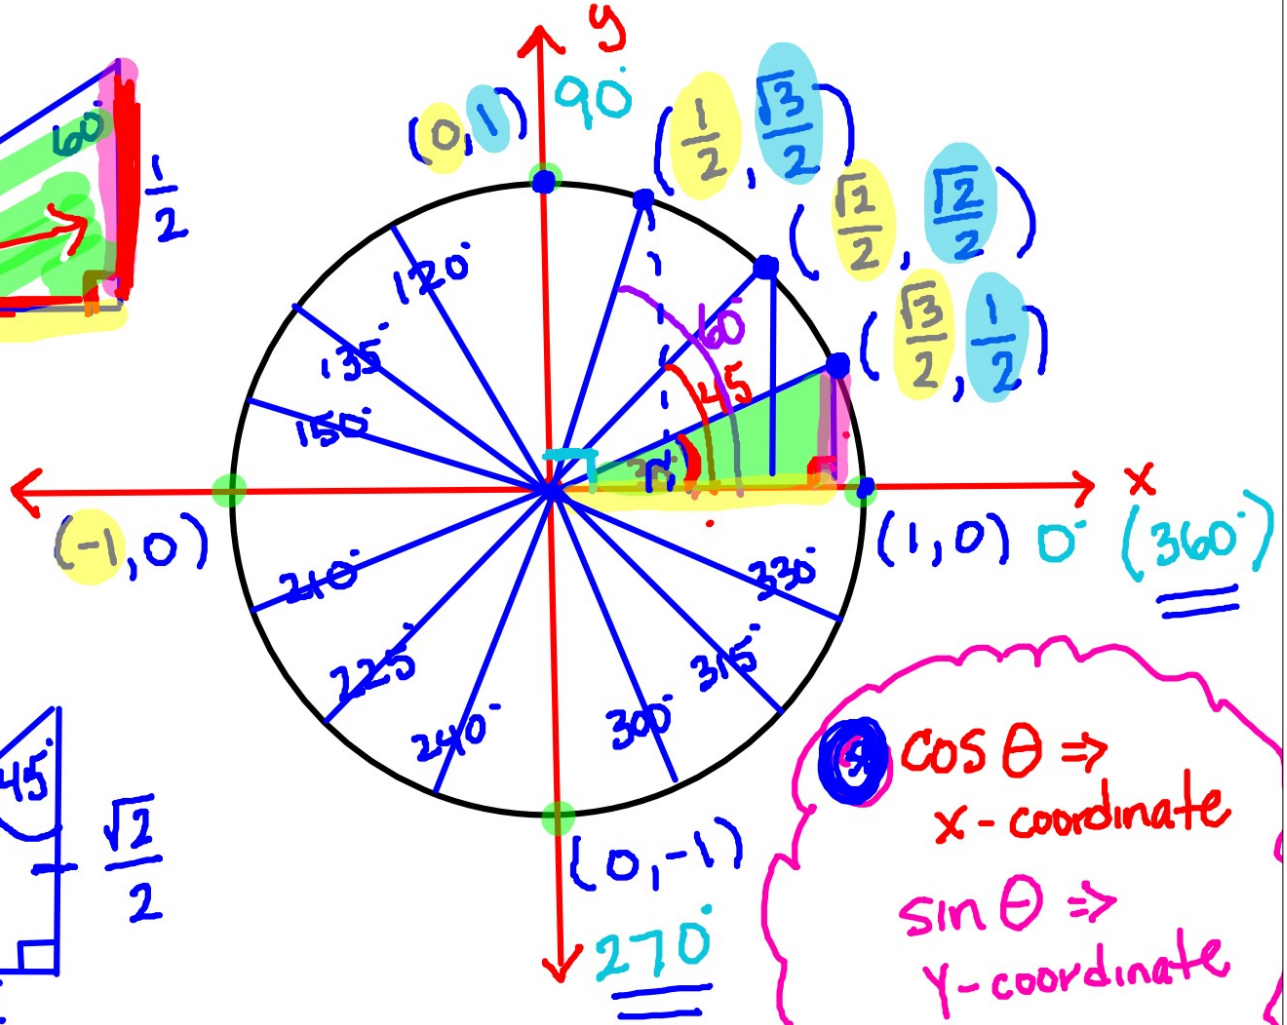 y
90°
(0,1)
(1/2, √3/2)
(√2/2, √2/2)
(√3/2, 1/2)
60°
1/2
120°
135°
150°
60°
45
x
(-1,0)
(1,0) 0° (360°)
210°
225°
240°
300°
315°
330°
(0,-1)
270°
45°
√2/2
cos θ ⇒
x-coordinate
sin θ ⇒
y-coordinate